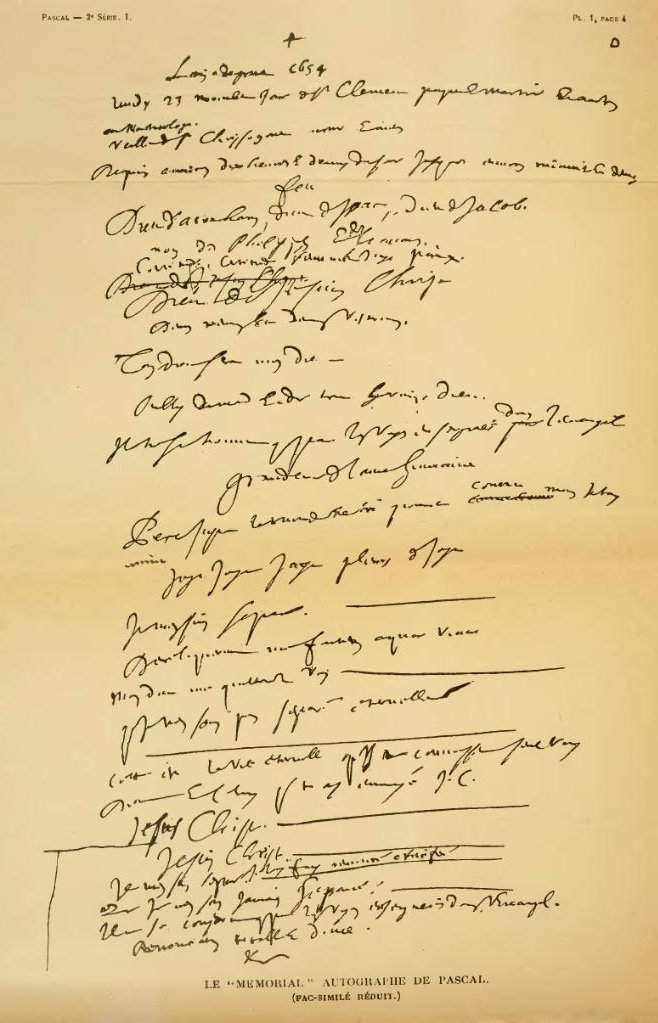 PASCAL — 2e SÉRIE. 1.
PL. 1, PAGE 4
D
L'an de grace 1654
Lundy 23 novembre jour de St Clement pape et martir et autres
au Martirologe
veille de St Chrysogone martir et autres
Depuis environ dix heures et demy du soir jusques environ minuit et demy
feu
Dieu d'Abraham, Dieu d'Isaac, Dieu de Jacob.
non des Philosophes et des scavans.
Certitude, certitude, sentiment joye paix.
Dieu de Jesus Christ
Deum meum et Deum vestrum.
Ton Dieu sera mon Dieu —
Oubly du monde et de tout hormis Dieu.
Il ne se trouve que par les voyes enseignées dans l'Evangile
Grandeur de l'ame humaine
Pere juste le monde ne t'a point connu mais je t'ay
connu
Joye Joye Joye pleurs de joye
Je m'en suis separé.
Dereliquerunt me fontem aquae vivae
mon Dieu me quitterez vous
que je n'en sois pas separé eternellement
Cette est la vie eternelle qu'ils te connoissent seul vray
Dieu et celuy que tu as envoyé J. C.
Jesus Christ.
Jesus Christ.
Je m'en suis separé je l'ay fuy renoncé crucifié
que je n'en sois jamais separé.
Il ne se conserve que par les voyes enseignées dans l'Evangile.
Renonciation totale et douce.
LE “MEMORIAL” AUTOGRAPHE DE PASCAL.
(FAC-SIMILÉ RÉDUIT.)